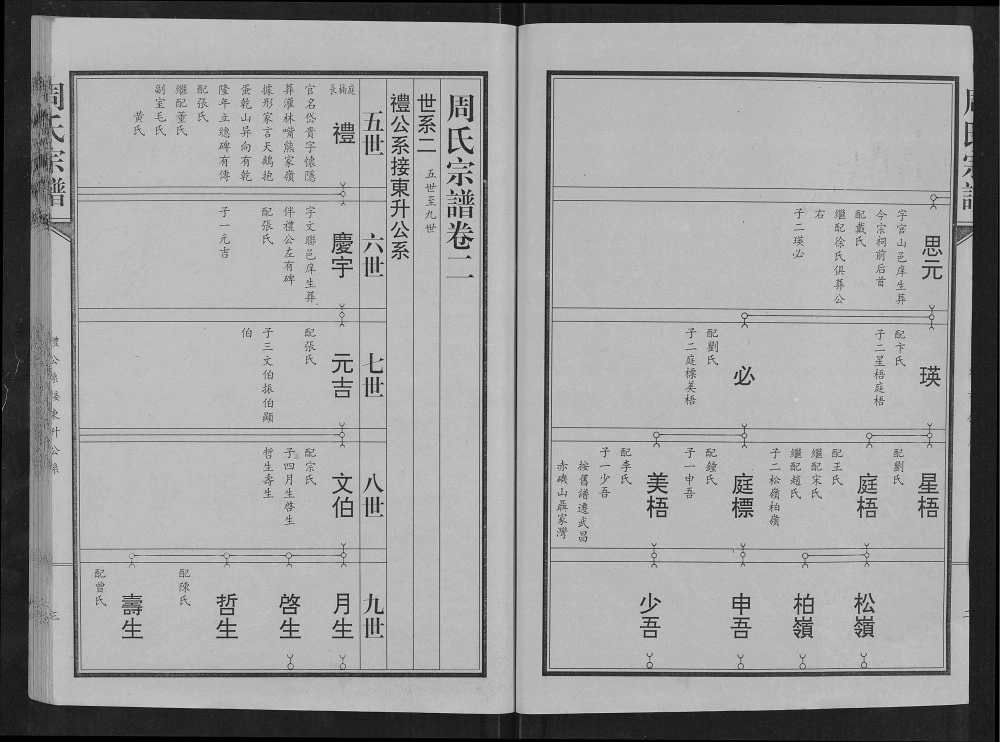 思元
字官山邑庠生葬
今宗祠前后首
配戴氏
繼配徐氏俱葬公
右
子二瑛必
瑛
配卞氏
子二星梧庭梧
必
配劉氏
子二庭標美梧
星梧
配劉氏
庭梧
配王氏
繼配宋氏
繼配趙氏
子二松嶺柏嶺
庭標
配鐘氏
子一申吾
美梧
配李氏
子一少吾
按舊譜遷武昌
赤磯山聶家灣
松嶺
柏嶺
申吾
少吾
周氏宗譜卷二
世系二 五世至九世
禮公系接東升公系
五世
六世
七世
八世
九世
庭楠長
禮
官名岱貴字懷隱
葬灌林嘴熊家嶺
據形家言天鵝抱
蛋乾山巽向有乾
隆年立總碑有傳
配張氏
繼配董氏
副室毛氏
黃氏
慶宇
字文聯邑庠生葬
伴禮公左有碑
配張氏
子一元吉
元吉
配張氏
子三文伯振伯顯
伯
文伯
配宗氏
子四月生啓生
哲生壽生
月生
啓生
哲生
配陳氏
壽生
配曾氏
周氏宗譜
禮公系接東升公系
三